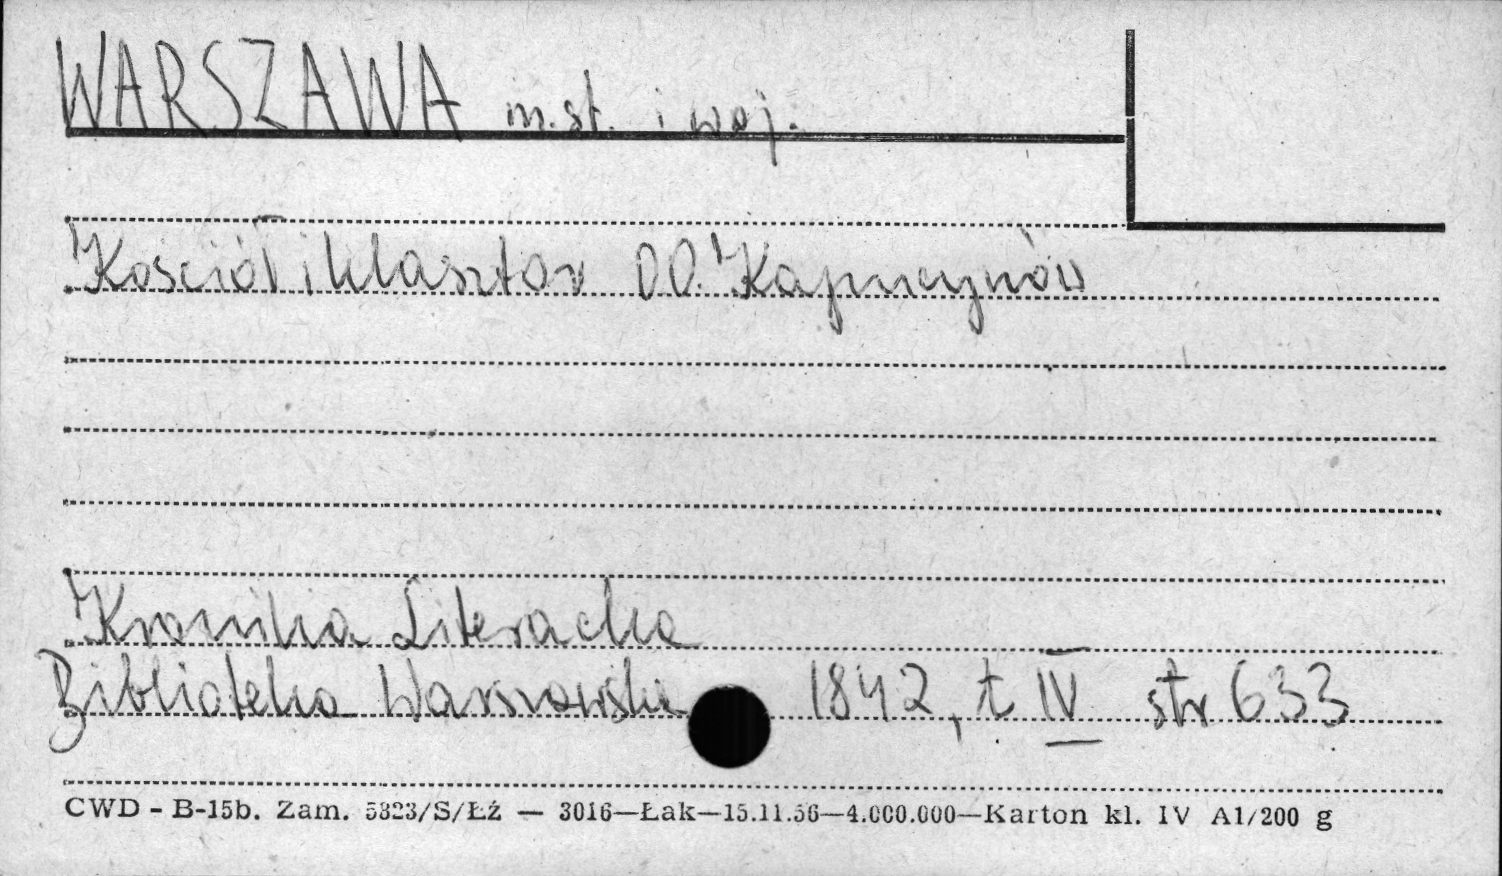 WARSZAWA m.st. i woj.
Kościół i klasztor OO. Kapucynów
Kronika Literacka
Biblioteka Warszawska 1842, t IV str 633
CWD - B-15b. Zam. 5823/S/ŁŹ — 3016—Łak—15.11.56—4.000.000—Karton kl. IV A1/200 g